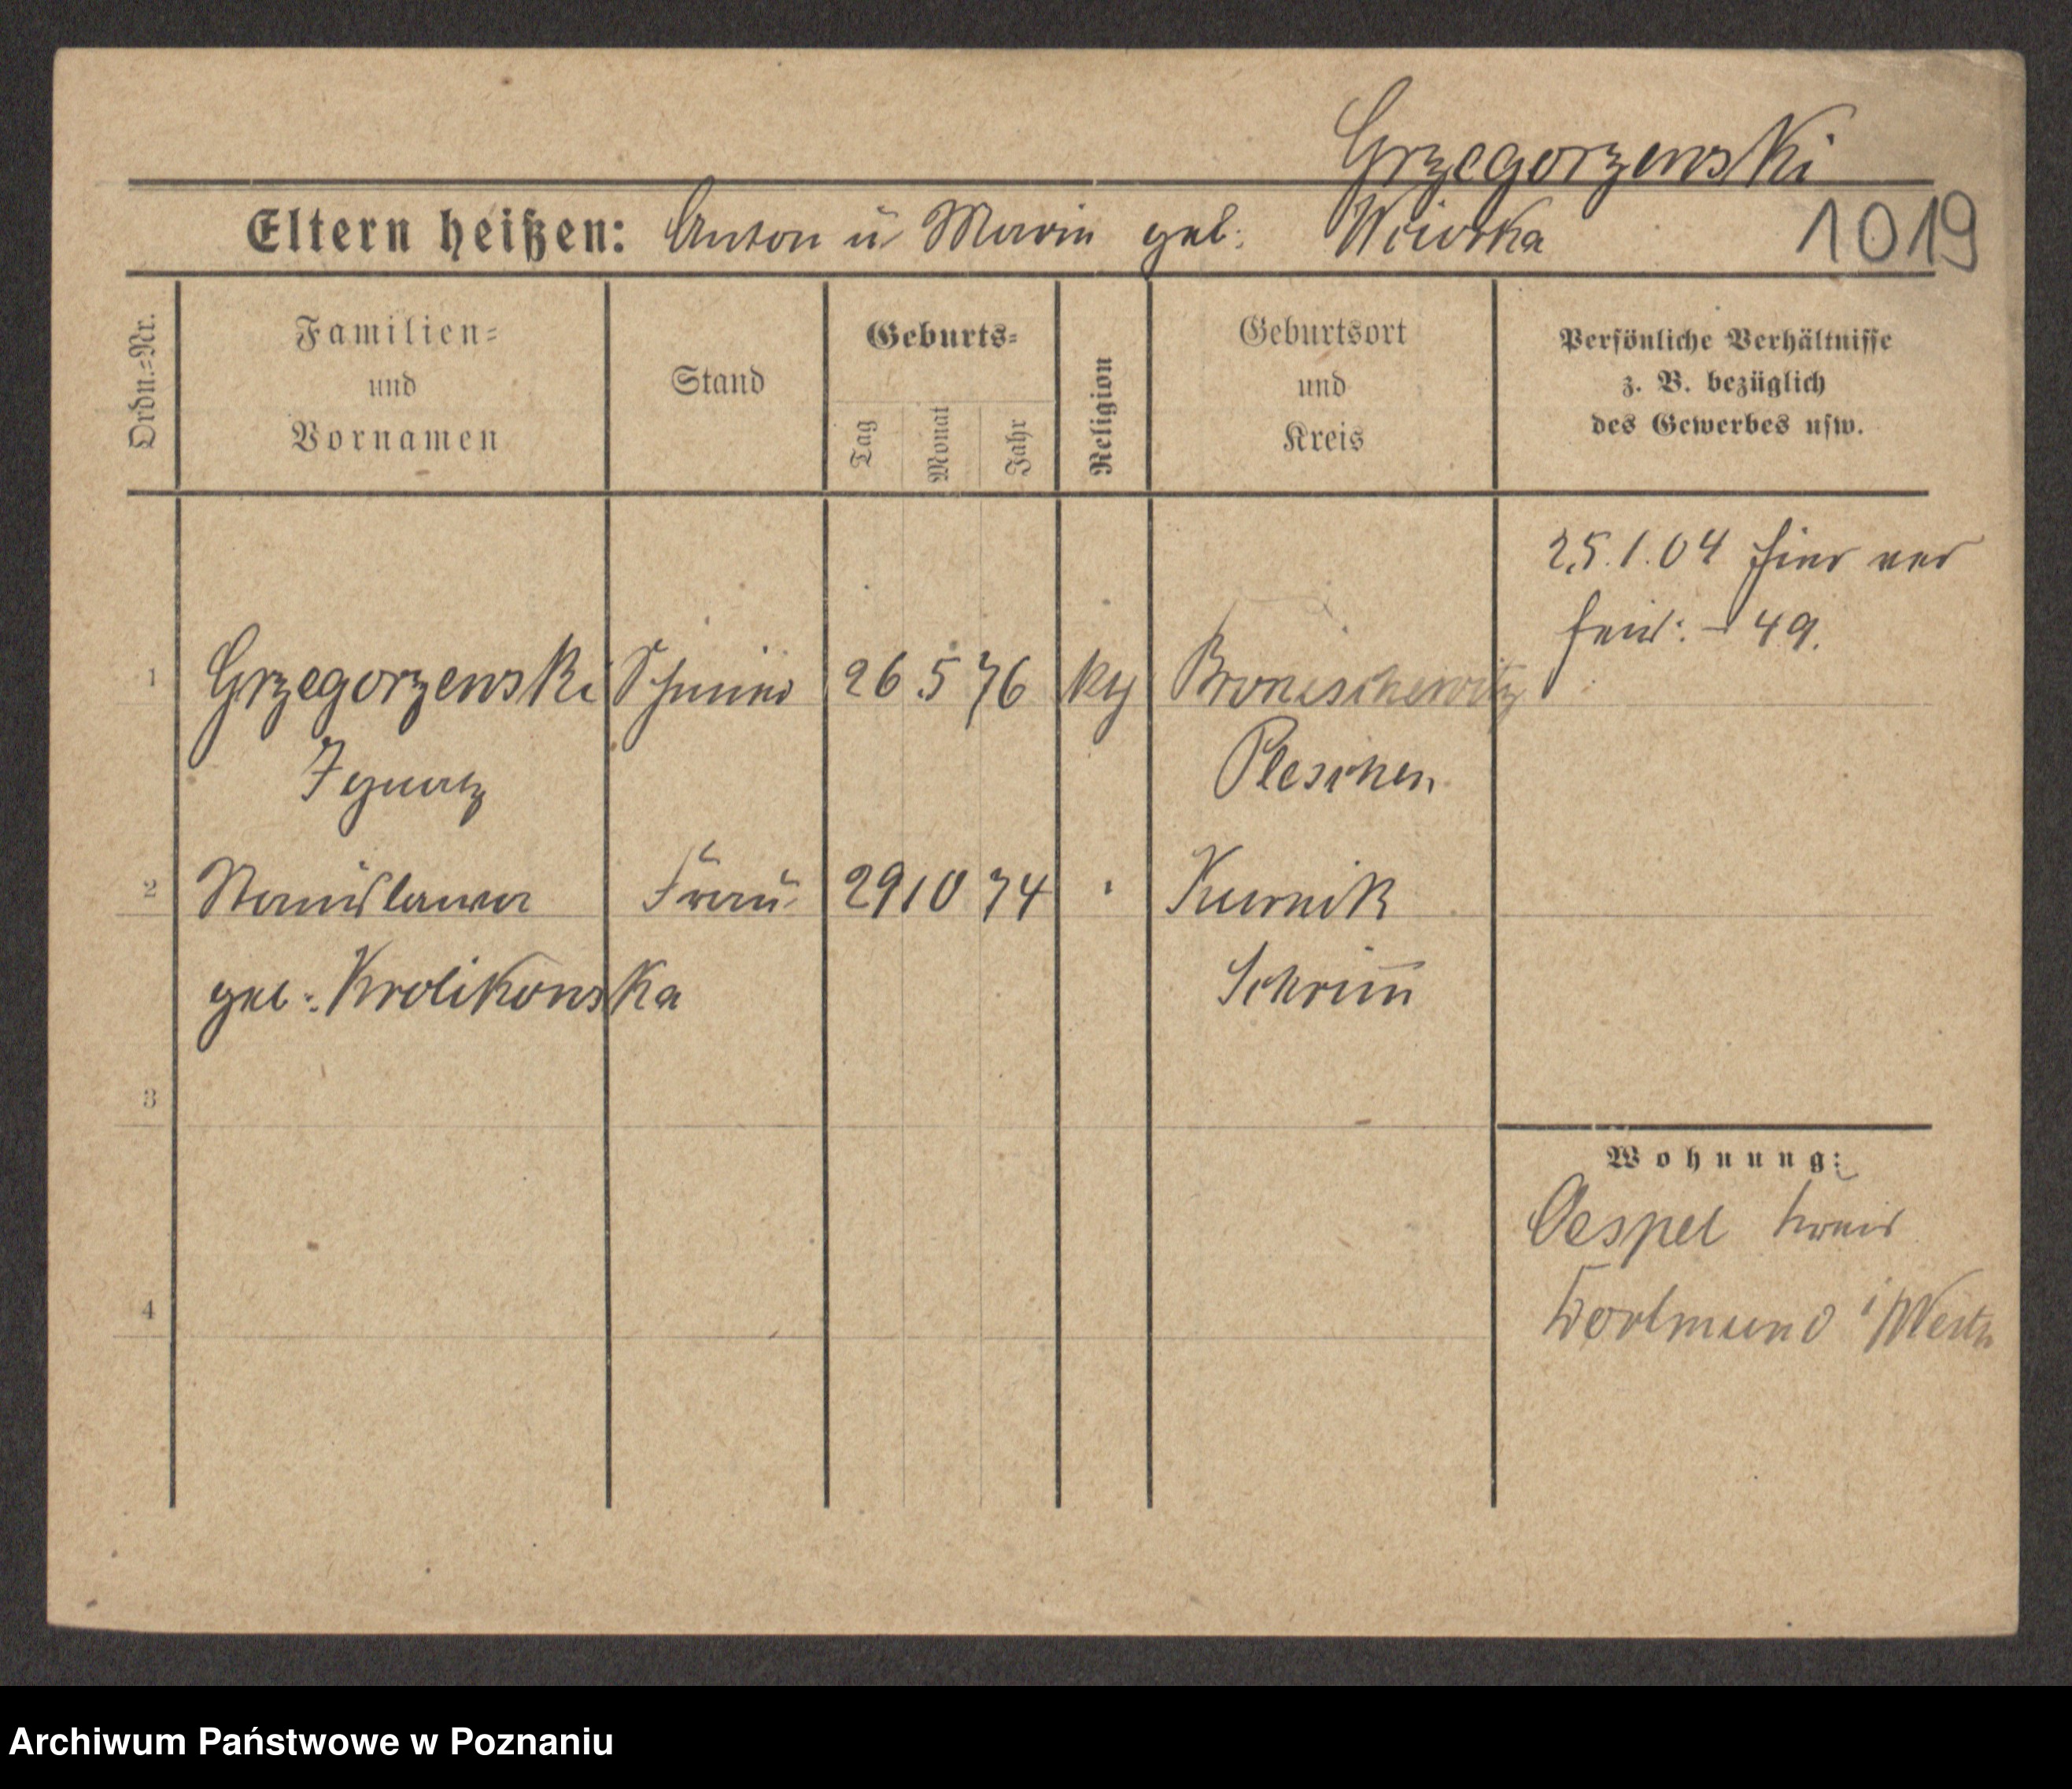 Grzegorzewski
Eltern heißen: Anton u Maria geb: 1019
Ordn.=Nr.
Familien=
und
Vornamen
Stand
Geburts=
Tag
Monat
Jahr
Religion
Geburtsort
und
Kreis
Persönliche Verhältnisse
z. B. bezüglich
des Gewerbes usw.
25.1.04 hier ver
heir: 49.
1 Grzegorzewski Schmied 26 5 76 kt Bronischewitz
Ignatz Pleschen
2 Stanislawa Frau 29 10 74 " Kurnik
geb: Krolikowska Schrim̅
3
Wohnung:
Oespel Kreis
4 Dortmund i/Westn
Archiwum Państwowe w Poznaniu